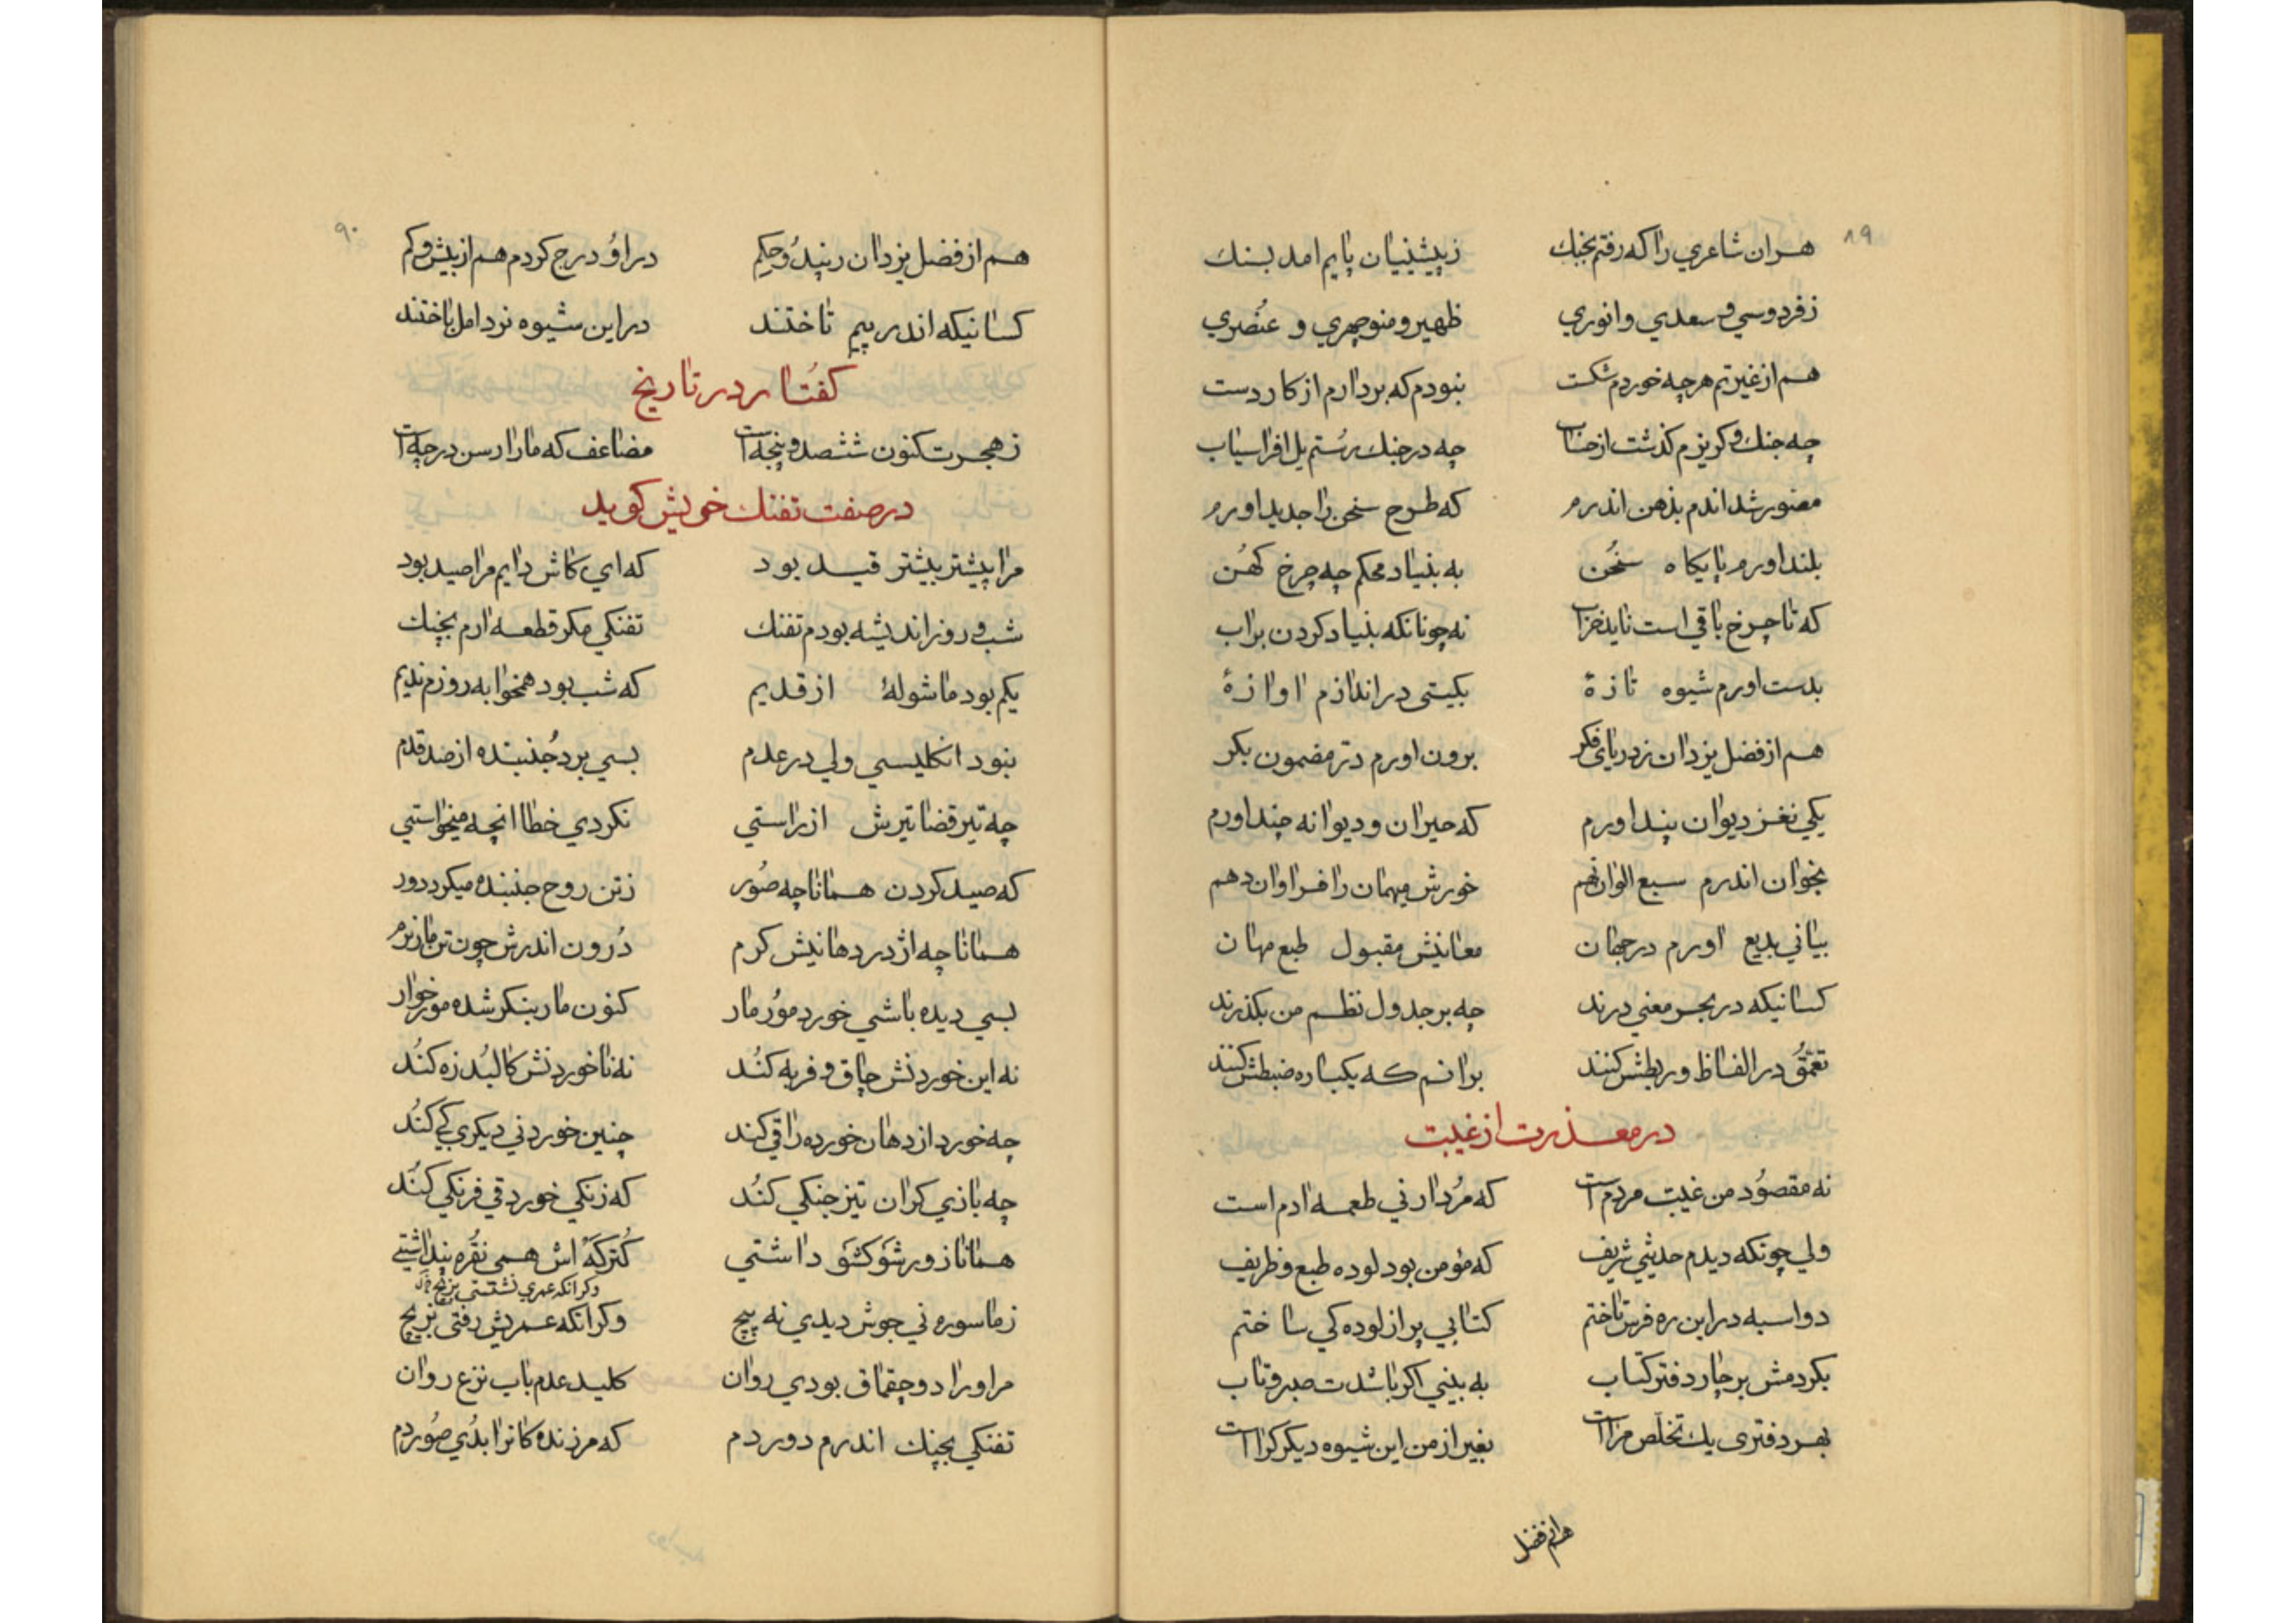 ٨٩
هران شاعري را که رفتم بجنك زپیشینیان پایم امد بسنك
زفردوسي و سعدي و انوري ظهیر و منوچهري و عنصري
هم از غیرتم هرچه خوردم شکست نبودم که بردارم از کار دست
چه جنك و کریزم کذشت از حساب چه در جنك رستم یل افراسیاب
مصور شد اندم بذهن اندرم که طرح سخن را جدید اورم
بلند اورم پایکاه سخن به بنیاد محکم چه چرخ کهن
که تا چرخ باقي است ناید خراب نه چونانکه بنیاد کردن براب
بدست اورم شیوه تازهٔ بکیتی در اندازم اوازهٔ
هم از فضل یزدان زدریای فکر برون اورم در مضمون بکر
یکی نغز دیوان پند اورم که حیران و دیوانه چند اورم
بخوان اندرم سبع الوان نهم خورش میهمان را فراوان دهم
بیاني بدیع اورم در جهان معانیش مقبول طبع مهان
کسانیکه در بحر معني درند چه بر جدول نظم من بکذرند
تعمق در الفاظ و ربطش کنند برانم که یکباره ضبطش کنند
در معذرت از غیبت
نه مقصود من غیبت مردم است که مردار ني طعمه ادم است
ولي چونکه دیدم حدیثي شریف که مؤمن بود لوده طبع و ظریف
دواسبه در این ره فرس تاختم کتابي پر از لوده کي ساختم
بکردمش بر چار دفتر کتاب به بیني اکر باشدت صبر و تاب
بهر دفتری یك تخلص مراست بغیر از من این شیوه دیکر کراست
هم از فضل
٩٠
هم از فضل یزدان رپند و حکم در او درج کردم هم از بیش و کم
کسانیکه اندر پیم تاختند در این شیوه نرد امل باختند
کفتار در تاریخ
زهجرت کنون ششصد و پنجه است مضاعف که مارا رسن در چه است
در صفت تفنك خویش کوید
مرا پیشتر بیشتر قید بود که اي کاش دایم مرا صید بود
شب و روز اندیشه بودم تفنك تفنکي مکر قطعه ارم بچنك
یکم بود ماشولهٔ از قدیم که شب بود همخوابه روزم ندیم
نبود انکلیسي ولي در عدم بسي برد جنبنده از صد قدم
چه تیر قضا تیرش از راستي نکردي خطا انچه میخواستي
که صید کردن همانا چه صور زتن روح جنبنده میکرد دور
همانا چه اژدر دهانیش کرم درون اندرش چون تن مار نرم
بسي دیده باشي خورد مور مار کنون مار بنکر شده مور خوار
نه این خوردنش چاق و فربه کند نه ناخوردنش کالبد زه کند
چه خورد از دهان خورده را قي کند چنین خوردني دیکري کي کند
چه بازي کران تیز جنکي کند که زنکي خورد قي فرنکي کند
همانا ز ورشو کشو داشتي کترکه اش همي نقره پنداشتي
زماسوره ني جوش دیدي نه پیچ وکر انکه عمرش رفتي بریچ
مر اورا دو چقماق بودي روان کلید عدم باب نزع روان
تفنکي بچنك اندرم دور دم که مر زنده کانرا بدي صور دم